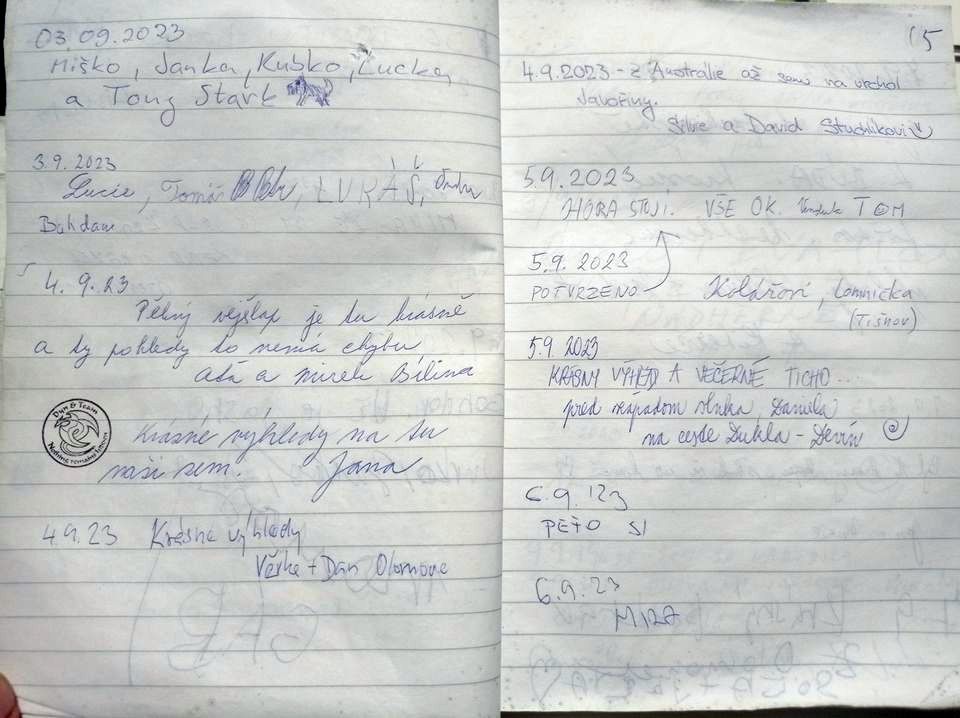 03.09.2023
Miško, Janka, Kubko, Lucka,
a Tony Stark
3.9.2023
Lucie, Tomáš, LUKÁŠ,
Bohdan
4.9.23
Pěkný výšlap je tu krásně
a ty pohledy to nemá chybu
a Mirek Bílina
Dyn & Team
Krásné výhledy na tu
naši zem. Jana
4.9.23 Krásné výhledy
Věrka + Dan Olomouc
15
4.9.2023 - z Austrálie až sem na vrchol
Javořiny.
Silvie a David Studlíkovi
5.9.2023
HORA STOJÍ. VŠE OK. TOM
5.9.2023
POTVRZENO Kolářovi, Lomnička
(Tišnov)
5.9.2023
KRÁSNY VÝHĽAD A VEČERNÉ TICHO...
pred západom slnka, Daniela
na ceste Dukla - Devín
6.9.123
PEŤO SI
6.9.23